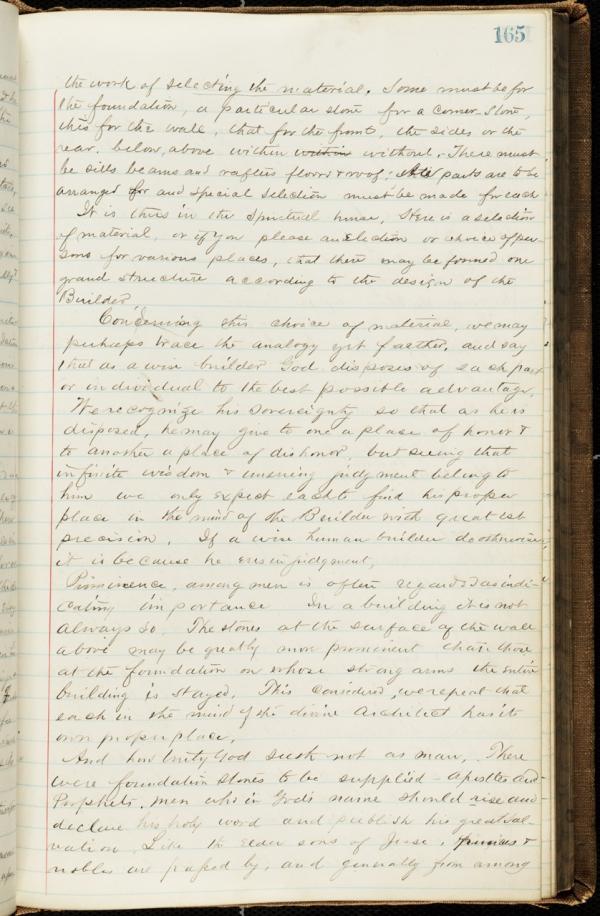 165
the work of selecting the material. Some must be for
the foundation, a particular stone for a corner-stone,
this for the wall, that for the front, the sides or the
rear, below, above within within without. There must
be sills beams and rafters floors & roof: All parts are to be
arranged for and special selection must be made for each
It is thus in the spiritual house, Here is a selection
of material, or if you please an Election or choice of per-
sons for various places, that there may be formed one
grand structure according to the design of the
Builder
Concerning this choice of material, we may
perhaps trace the analogy yet farther, and say
that as a wise builder God disposes of each part
or individual to the best possible advantage.
We recognize his sovereignty so that as he is
disposed, he may give to one a place of honor &
to another a place of dishonor, but seeing that
infinite wisdom & unerring judgment belong to
him we only expect each to find his proper
place in the mind of the Builder with greatest
precision. If a wise human builder do otherwise
it is because he errs in judgment,
Prominence, among men is often regarded as indi-
cating importance In a building it is not
always so. The stones at the surface of the wall
above may be greatly more prominent than those
at the foundation on whose strong arms the entire
building is stayed. This considered, we repeat that
each in the mind of the divine Architect has its
own proper place,
And how truly God seeth not as man, There
were foundation stones to be supplied - apostles and
Prophets, men who in God's name should rise and
declare his holy word and publish his great sal-
vation. Like the elder sons of Jesse, princes &
nobles are passed by, and generally from among